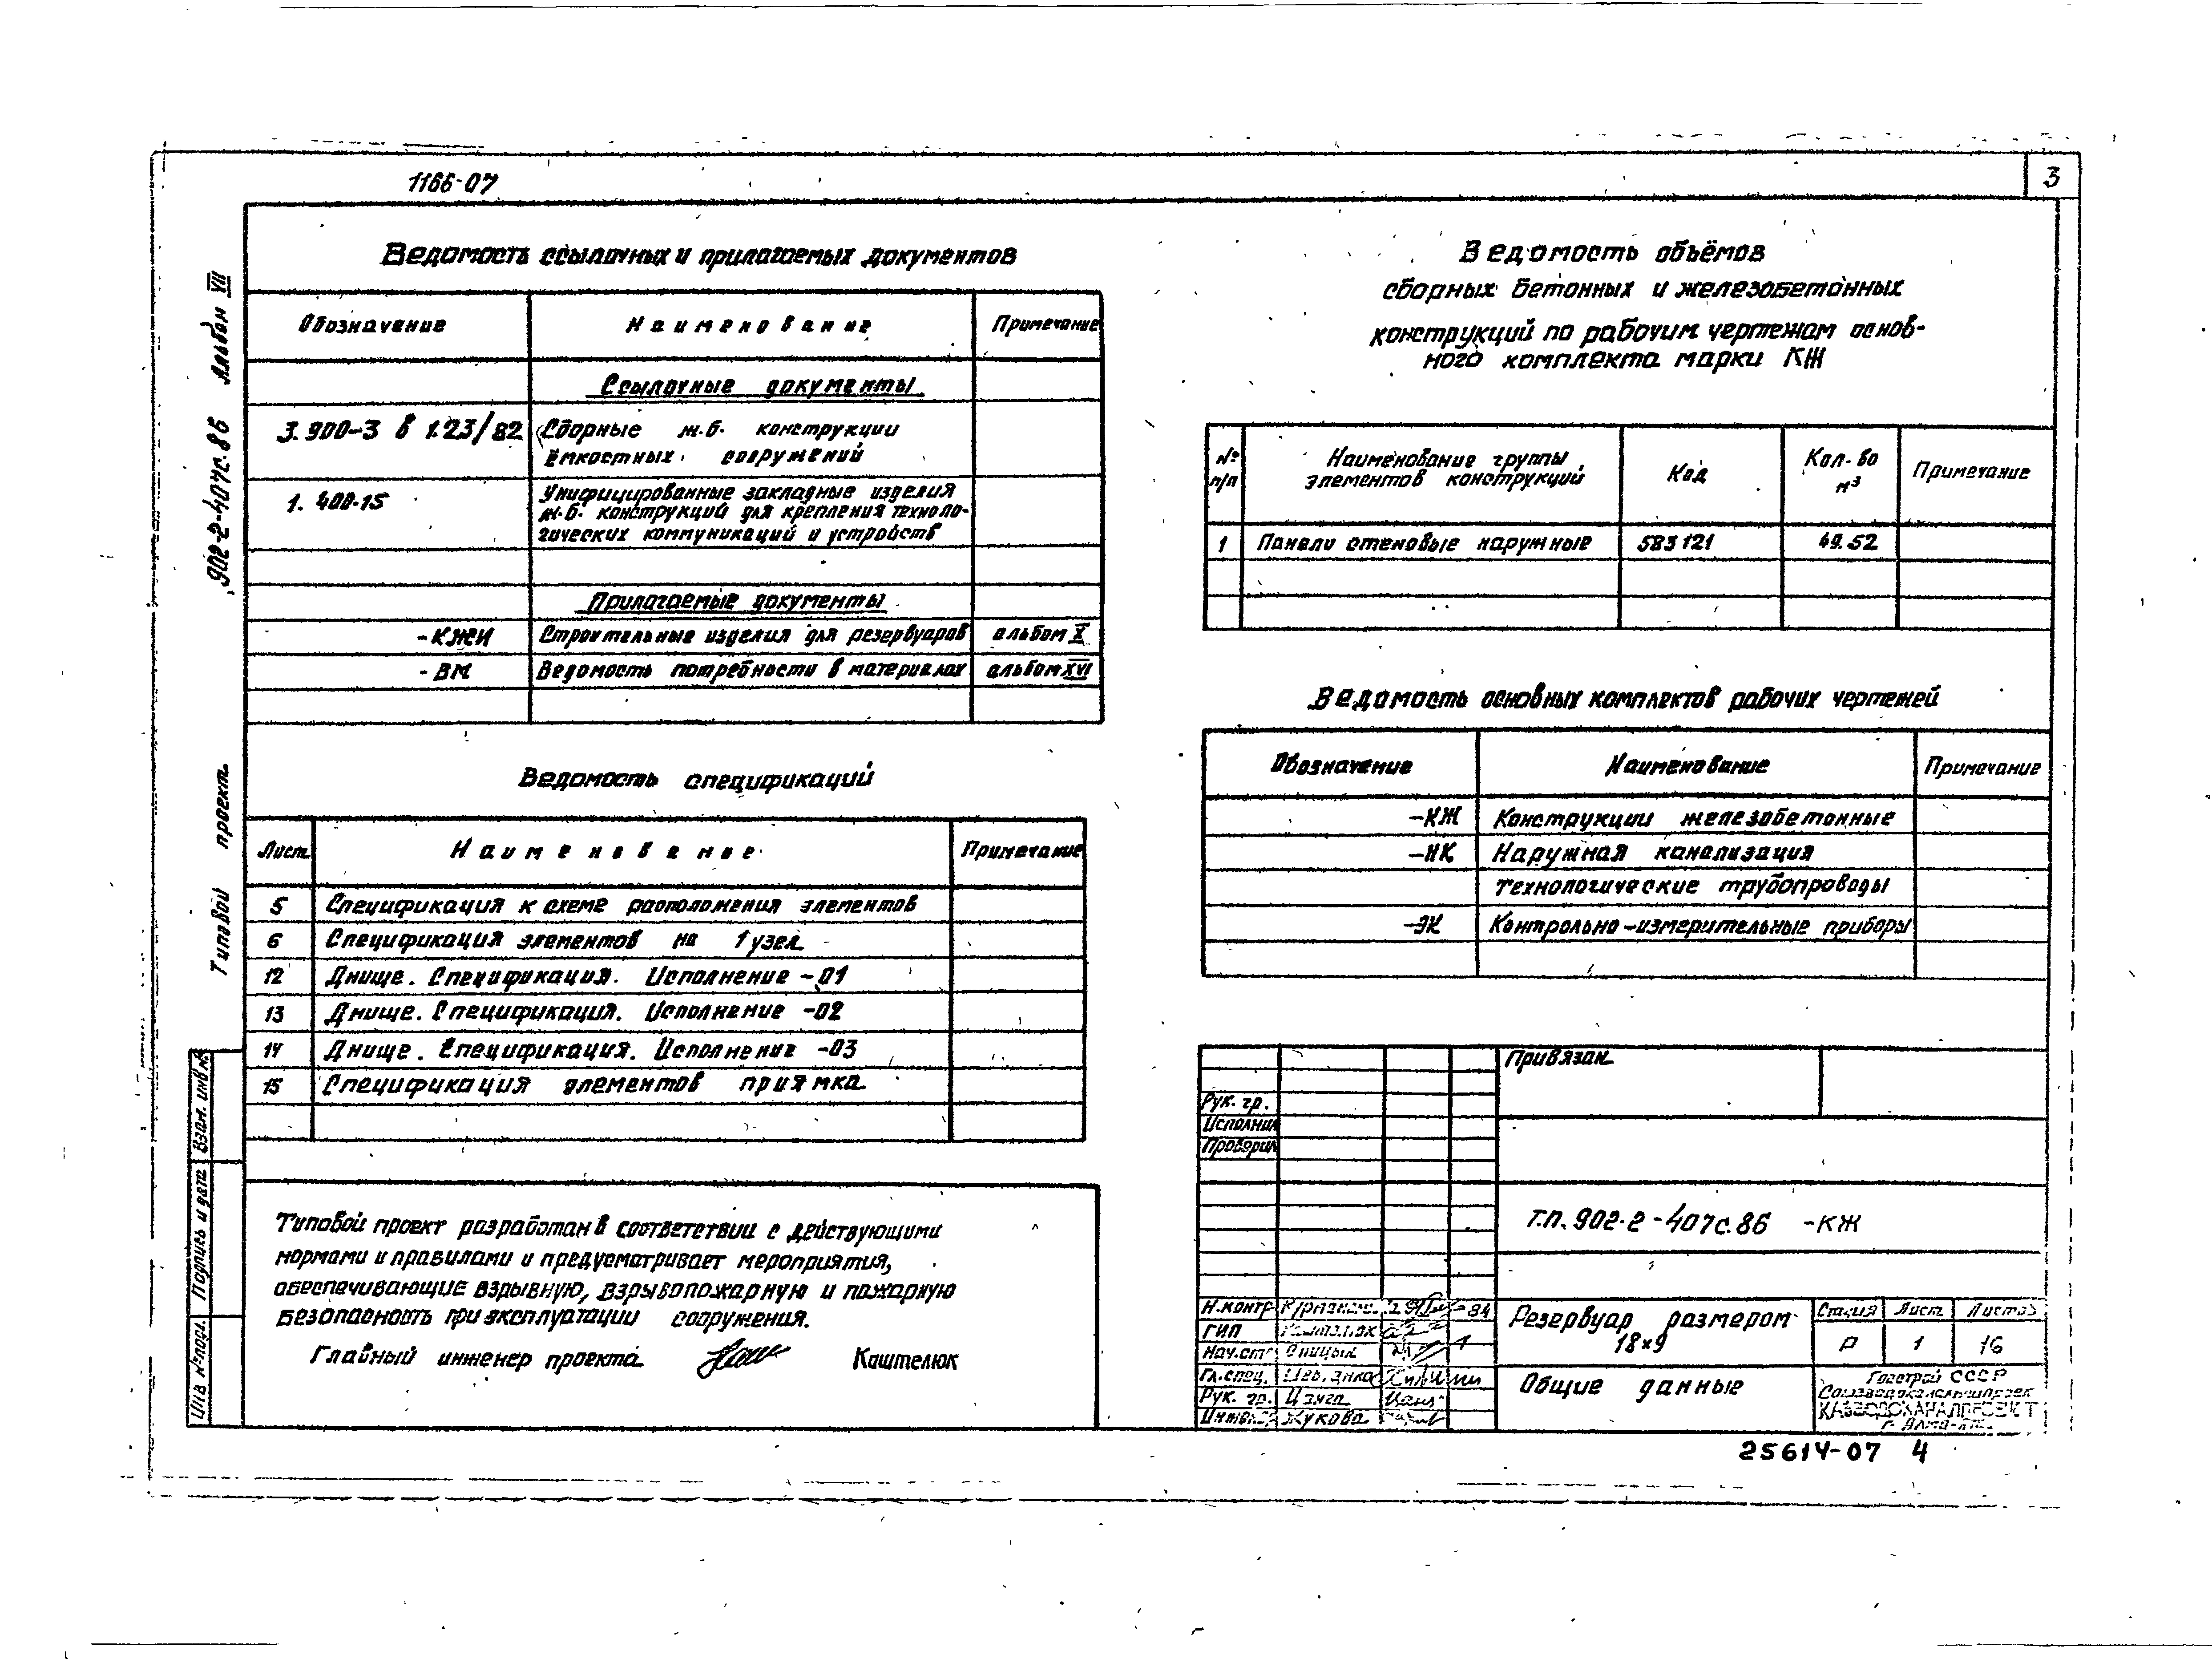 1166-07
3
902-2-407с.86 Альбом VII
Типовой проект
Ведомость ссылочных и прилагаемых документов
Обозначение Наименование Примечание
Ссылочные документы
3.900-3 в 1.2.3/82 Сборные ж.б. конструкции
ёмкостных сооружений
1.400-15 Унифицированные закладные изделия
ж.б. конструкций для крепления техноло-
гических коммуникаций и устройств
Прилагаемые документы
-КЖИ Строительные изделия для резервуаров альбом X
-ВМ Ведомость потребности в материалах альбом XVI
Ведомость спецификаций
Лист Наименование Примечание
5 Спецификация к схеме расположения элементов
6 Спецификация элементов на 1 узел
12 Днище. Спецификация. Исполнение -01
13 Днище. Спецификация. Исполнение -02
14 Днище. Спецификация. Исполнение -03
15 Спецификация элементов приямка
Типовой проект разработан в соответствии с действующими
нормами и правилами и предусматривает мероприятия,
обеспечивающие взрывную, взрывопожарную и пожарную
безопасность при эксплуатации сооружения.
Главный инженер проекта Каштелюк
Ведомость объёмов
сборных бетонных и железобетонных
конструкций по рабочим чертежам основ-
ного комплекта марки КЖ
№ п/п Наименование группы элементов конструкций Код Кол-во м³ Примечание
1 Панели стеновые наружные 583121 49.52
Ведомость основных комплектов рабочих чертежей
Обозначение Наименование Примечание
-КЖ Конструкции железобетонные
-НК Наружная канализация
технологические трубопроводы
-ЭК Контрольно-измерительные приборы
Привязан
Рук. гр.
Исполнил
Проверил
Т.П. 902-2-407с.86 -КЖ
Н.контр
ГИП
Нач.от
Гл.спец.
Рук. гр. Цзуга
Инжен. Жукова
Резервуар размером
18×9
Стадия Лист Листов
Р 1 16
Общие данные
Госстрой СССР
Союзводоканалниипроек
КАЗВОДОКАНАЛПРОЕКТ
г. Алма-Ата
Инв № подл. Подпись и дата Взам. инв №
25614-07 4